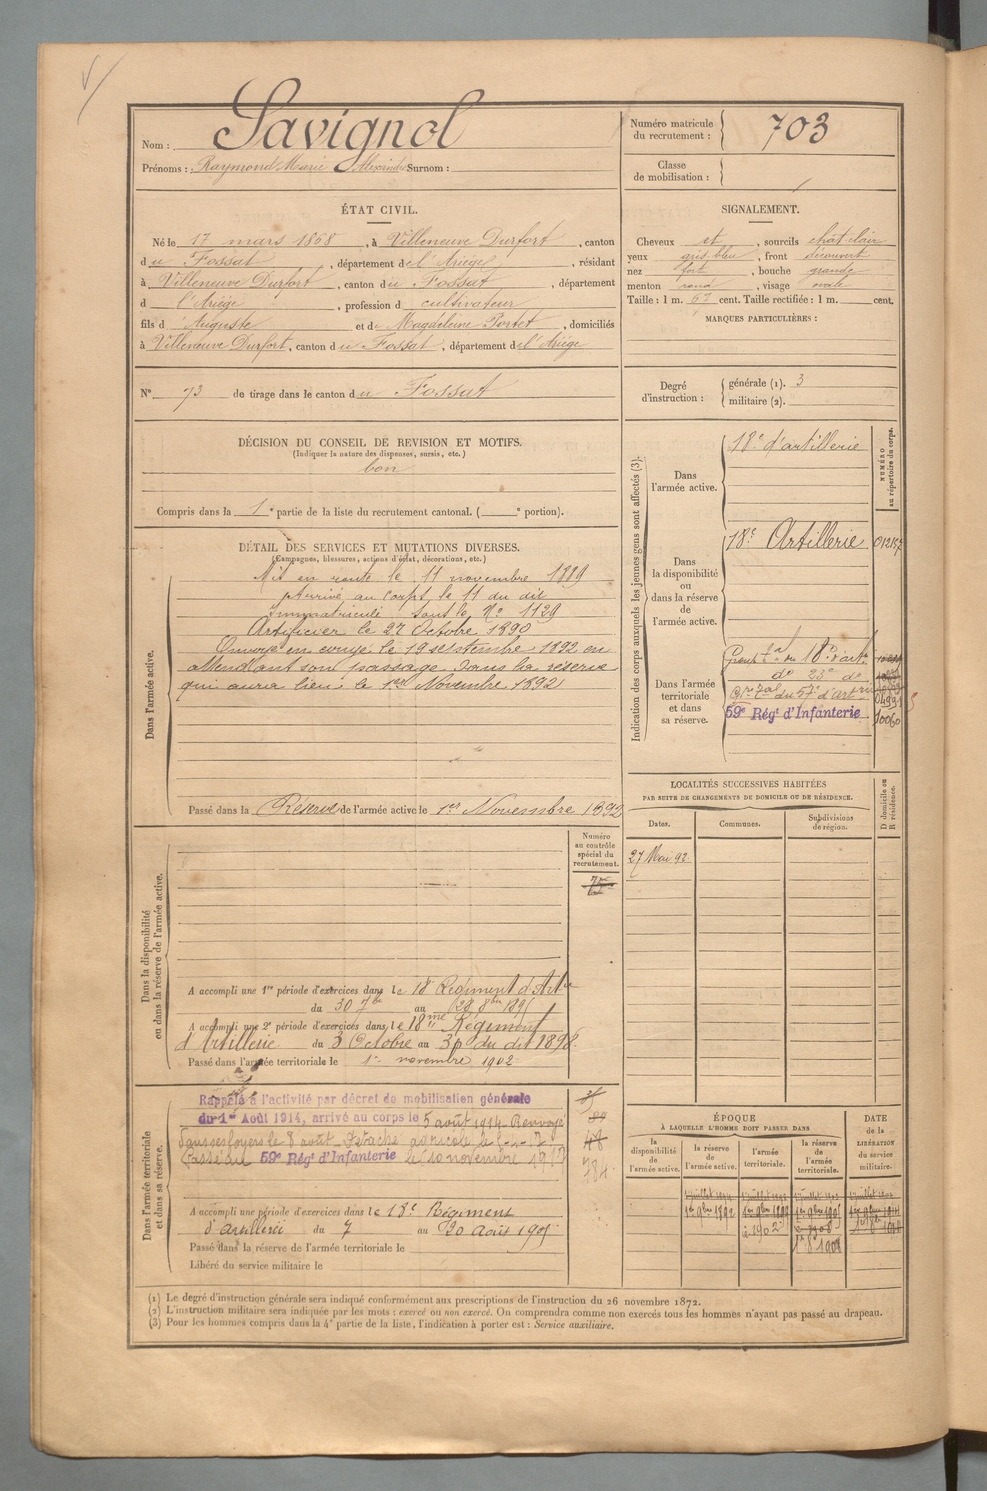 Nom : Savignol
Prénoms : Raymond Marie Alexandre Surnom :
Numéro matricule du recrutement : 703
Classe de mobilisation :
ÉTAT CIVIL.
Né le 17 mars 1868, à Villeneuve Durfort, canton
du Fossat, département de l'Ariège, résidant
à Villeneuve Durfort, canton du Fossat, département
d l'Ariège, profession d cultivateur
fils d'Auguste et de Magdeleine Portet, domiciliés
à Villeneuve Durfort, canton du Fossat, département de l'Ariège
SIGNALEMENT.
Cheveux et, sourcils chat. clair
yeux gris bleu, front découvert
nez fort, bouche grande
menton rond, visage ovale
Taille : 1 m. 67 cent. Taille rectifiée : 1 m. cent.
MARQUES PARTICULIÈRES :
N° 73 de tirage dans le canton du Fossat
Degré d'instruction : générale (1). 3
militaire (2).
DÉCISION DU CONSEIL DE REVISION ET MOTIFS.
(Indiquer la nature des dispenses, sursis, etc.)
bon
Compris dans la 1e partie de la liste du recrutement cantonal. ( e portion).
DÉTAIL DES SERVICES ET MUTATIONS DIVERSES.
(Campagnes, blessures, actions d'éclat, décorations, etc.)
Dans l'armée active.
Mis en route le 11 novembre 1889
Arrivé au corps le 11 du dit
Immatriculé sous le N° 1129
Artificier le 27 Octobre 1890
Envoyé en congé le 19 septembre 1892 en
attendant son passage dans la réserve
qui aura lieu le 1er Novembre 1892
Passé dans la Réserve de l'armée active le 1er Novembre 1892
Indication des corps auxquels les jeunes gens sont affectés (3).
NUMÉRO au répertoire du corps.
Dans l'armée active.
18e d'artillerie
Dans la disponibilité ou dans la réserve de l'armée active.
18e Artillerie
Dans l'armée territoriale et dans sa réserve.
Groupe tal du 18e d'artie
do 23e do
Gr. tal du 57e d'artie
04991
59e Régt d'Infanterie
10060
LOCALITÉS SUCCESSIVES HABITÉES
PAR SUITE DE CHANGEMENTS DE DOMICILE OU DE RÉSIDENCE.
Dates. Communes. Subdivisions de région. D domicile ou R résidence.
27 Mai 92
Dans la disponibilité ou dans la réserve de l'armée active.
Numéro au contrôle spécial du recrutement.
75
A accompli une 1re période d'exercices dans le 18e Régiment d'Artie
du 30 7bre au 8bre 1895
A accompli une 2e période d'exercices dans le 18me Régiment
d'Artillerie du 3 Octobre au 30 du dit 1898
Passé dans l'armée territoriale le 1er novembre 1902
Dans l'armée territoriale et dans sa réserve.
Rappelé à l'activité par décret de mobilisation générale
du 1er Août 1914, arrivé au corps le 5 août 1914. Renvoyé
dans ses foyers le 8 août. Détaché agricole le
Passé au 59e Régt d'Infanterie le 10 novembre 1917
784
A accompli une période d'exercices dans le 18e Régiment
d'artillerie du 7 au 20 Août 1905
Passé dans la réserve de l'armée territoriale le
Libéré du service militaire le
ÉPOQUE
À LAQUELLE L'HOMME DOIT PASSER DANS
la disponibilité de l'armée active. la réserve de l'armée active. l'armée territoriale. la réserve de l'armée territoriale.
DATE de la LIBÉRATION du service militaire.
1er 9bre 1892
(1) Le degré d'instruction générale sera indiqué conformément aux prescriptions de l'instruction du 26 novembre 1872.
(2) L'instruction militaire sera indiquée par les mots : exercé ou non exercé. On comprendra comme non exercés tous les hommes n'ayant pas passé au drapeau.
(3) Pour les hommes compris dans la 4e partie de la liste, l'indication à porter est : Service auxiliaire.